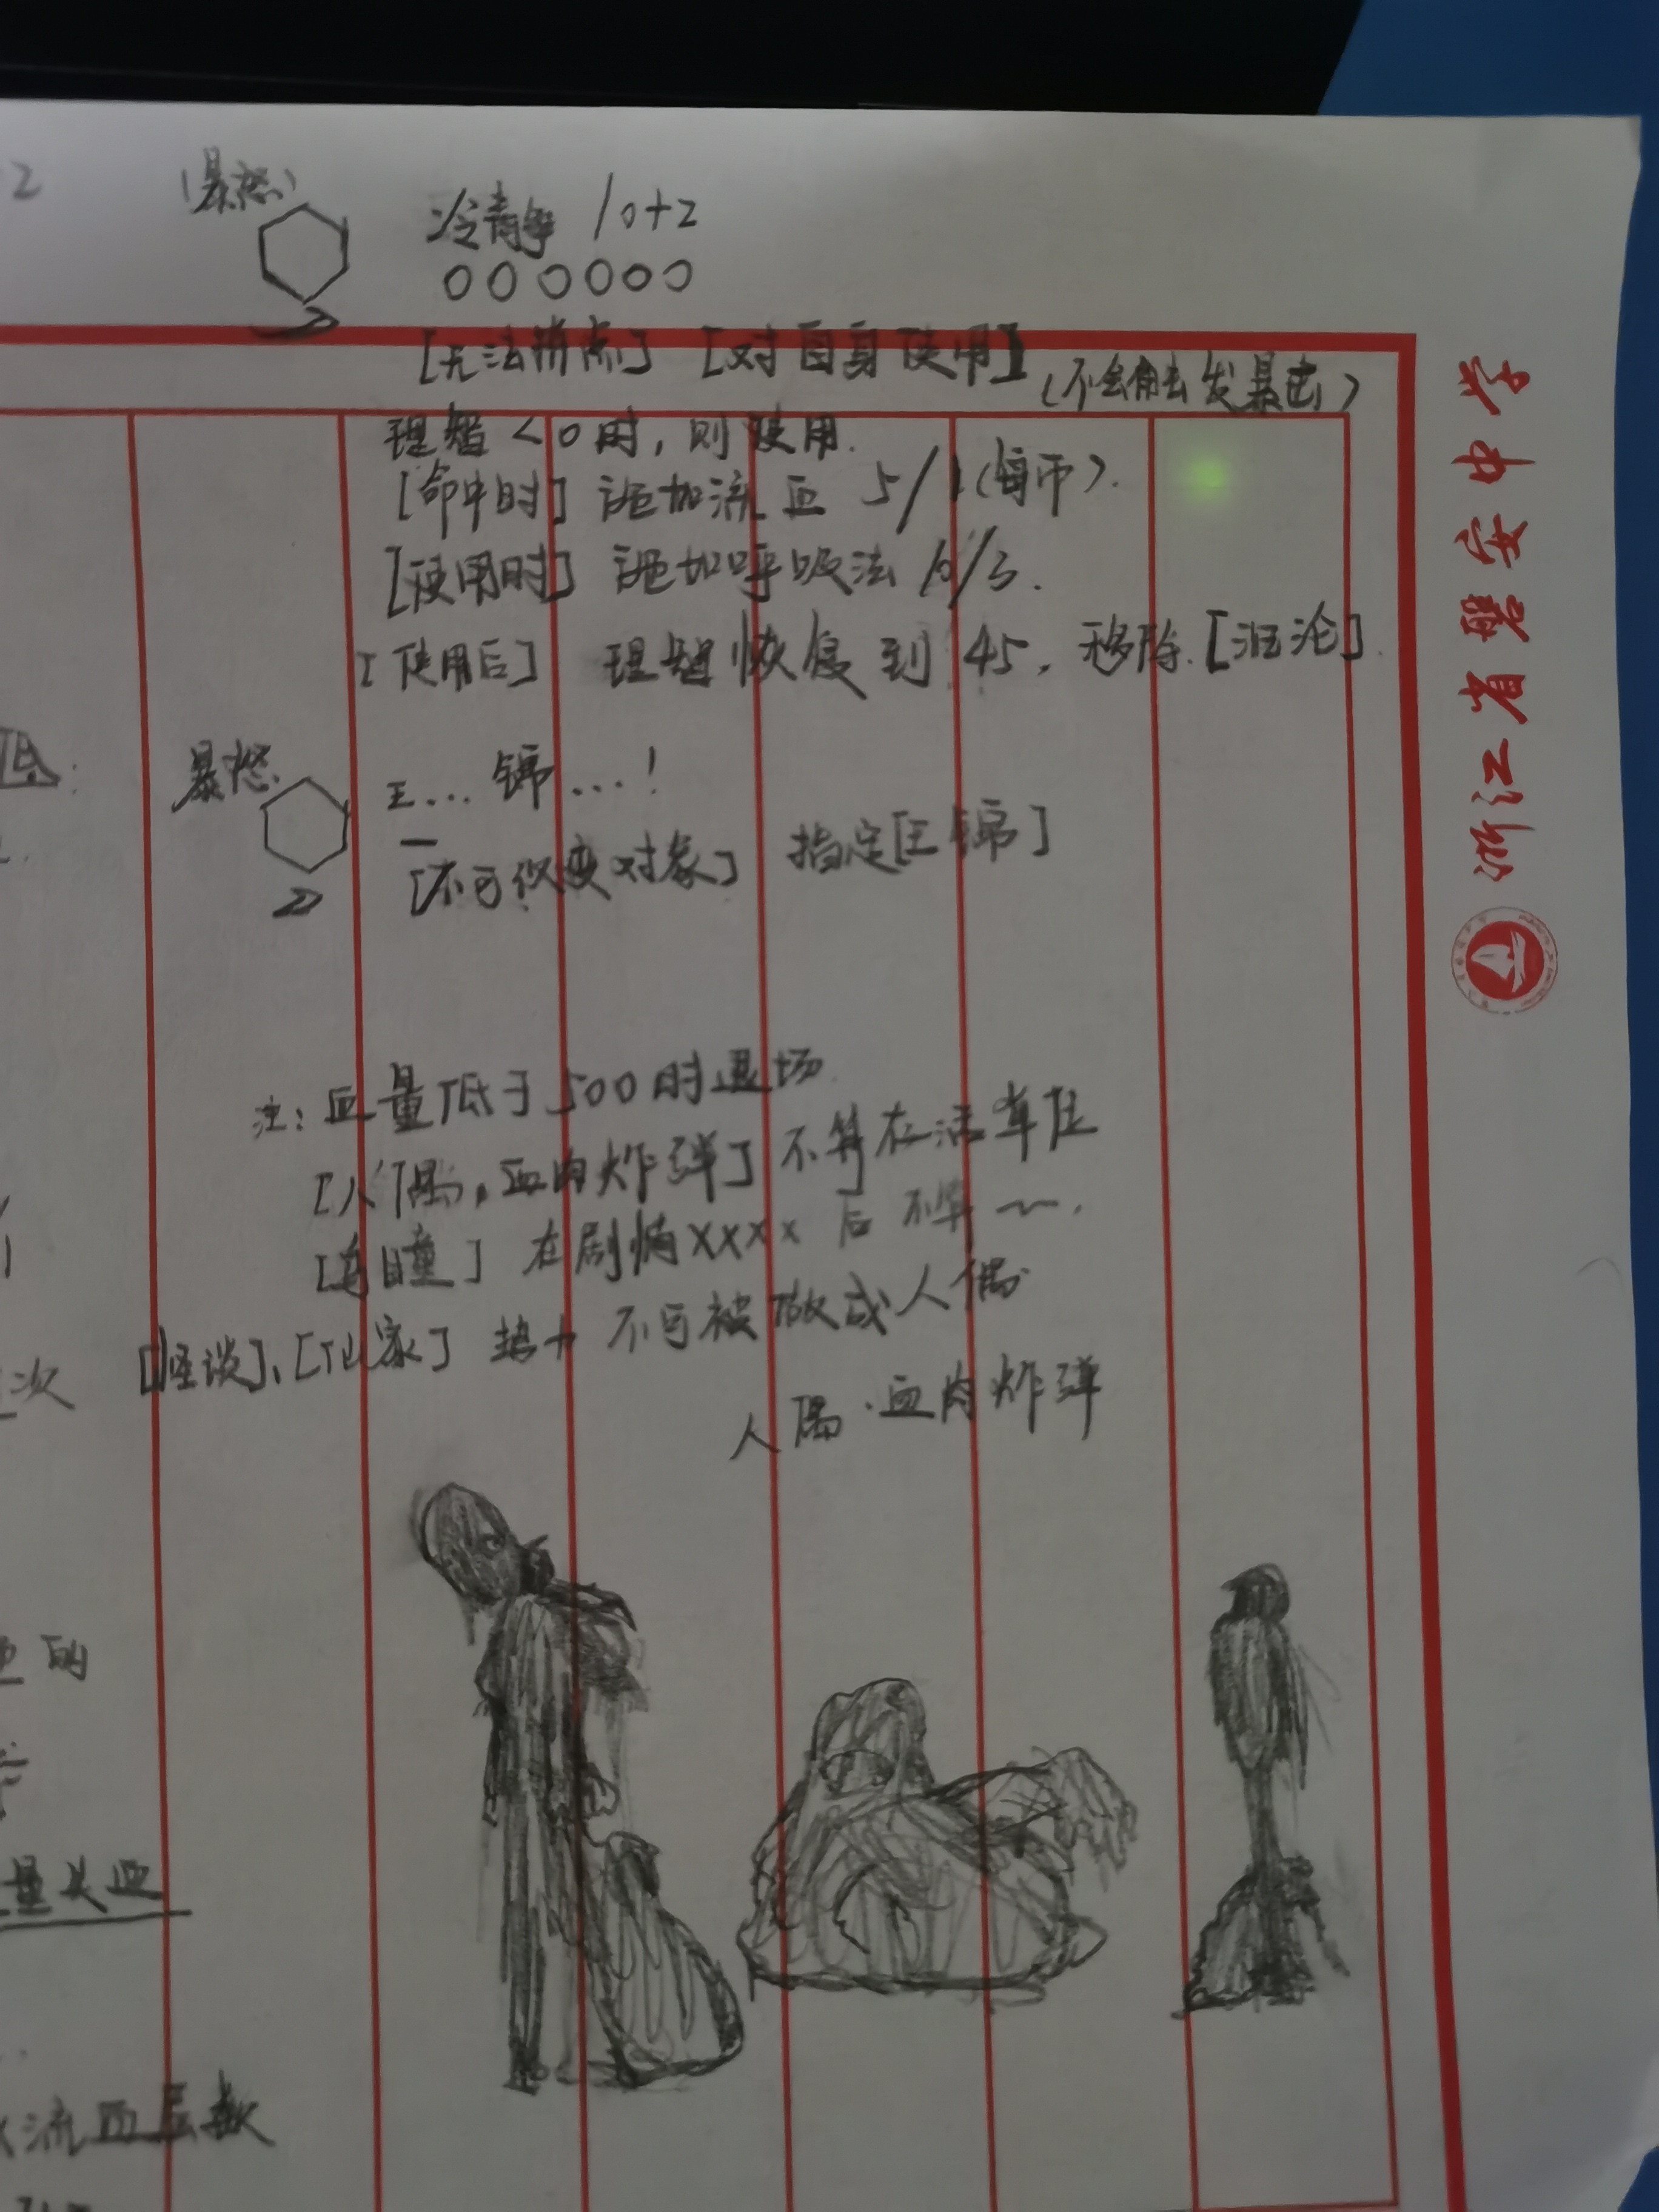 2
(暴怒)
冷静 10+2
○○○○○○
[无法拼点] [对自身使用]
(不会触发暴击)
理智<0时，则使用.
[命中时] 施加流血 5/1(每币).
[使用时] 施加呼吸法 10/3.
[使用后] 理智恢复到 45，移除.[泪沦].
暴怒
王...锦...!
[不可改变对象] 指定[王锦]
注：血量低于500时退场.
[人偶，血肉炸弹] 不算存活单位
在剧情xxxx后 不算~.
[怪谈]、[仙家] 势力 不可被做成人偶
人偶·血肉炸弹
次
的
量失血
流血层数
浙江省瑞安中学